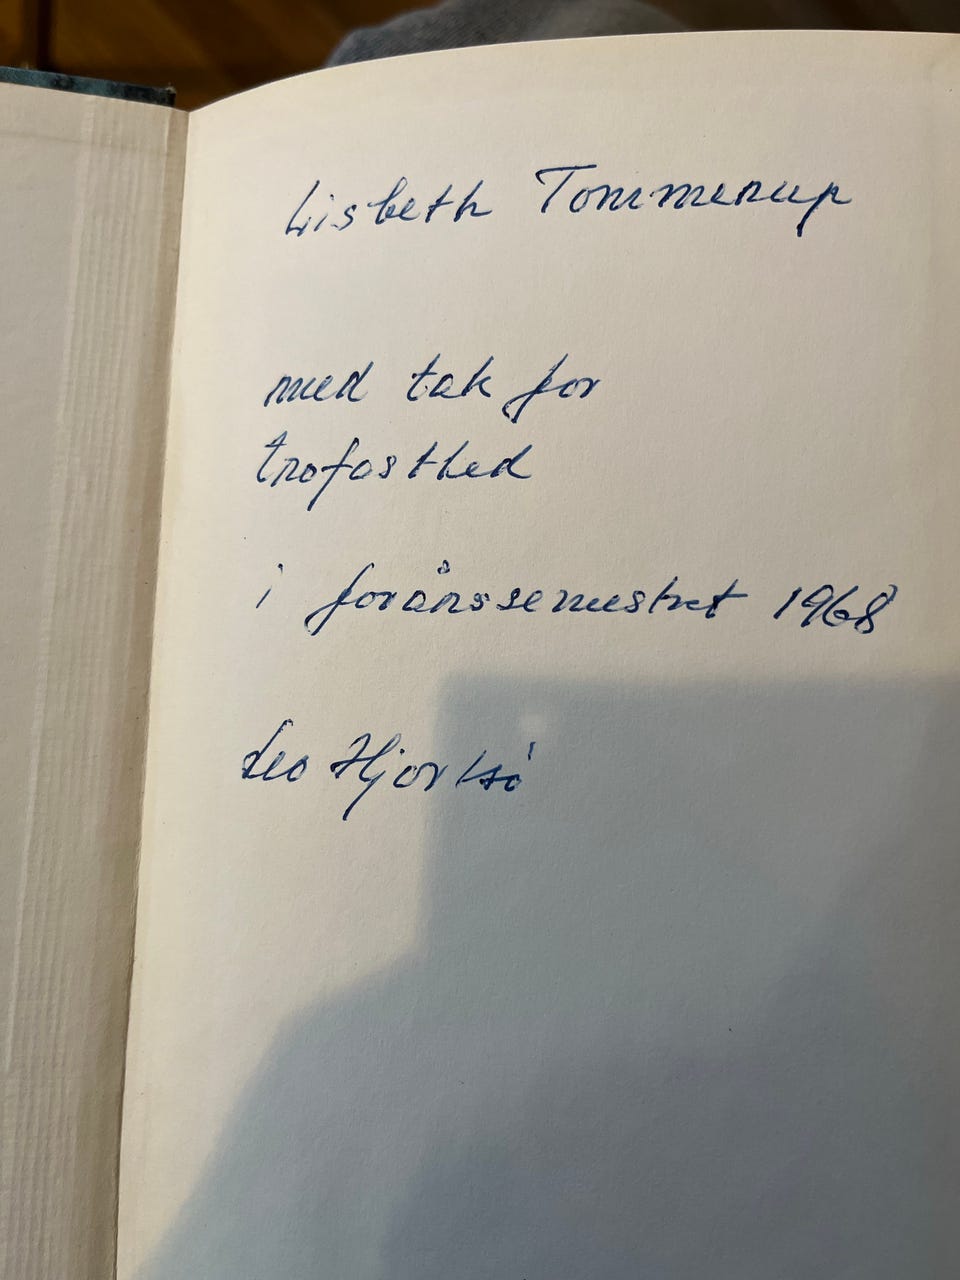 Lisbeth Tommerup
med tak for
trofasthed
i forårssemestret 1968
Leo Hjortsø